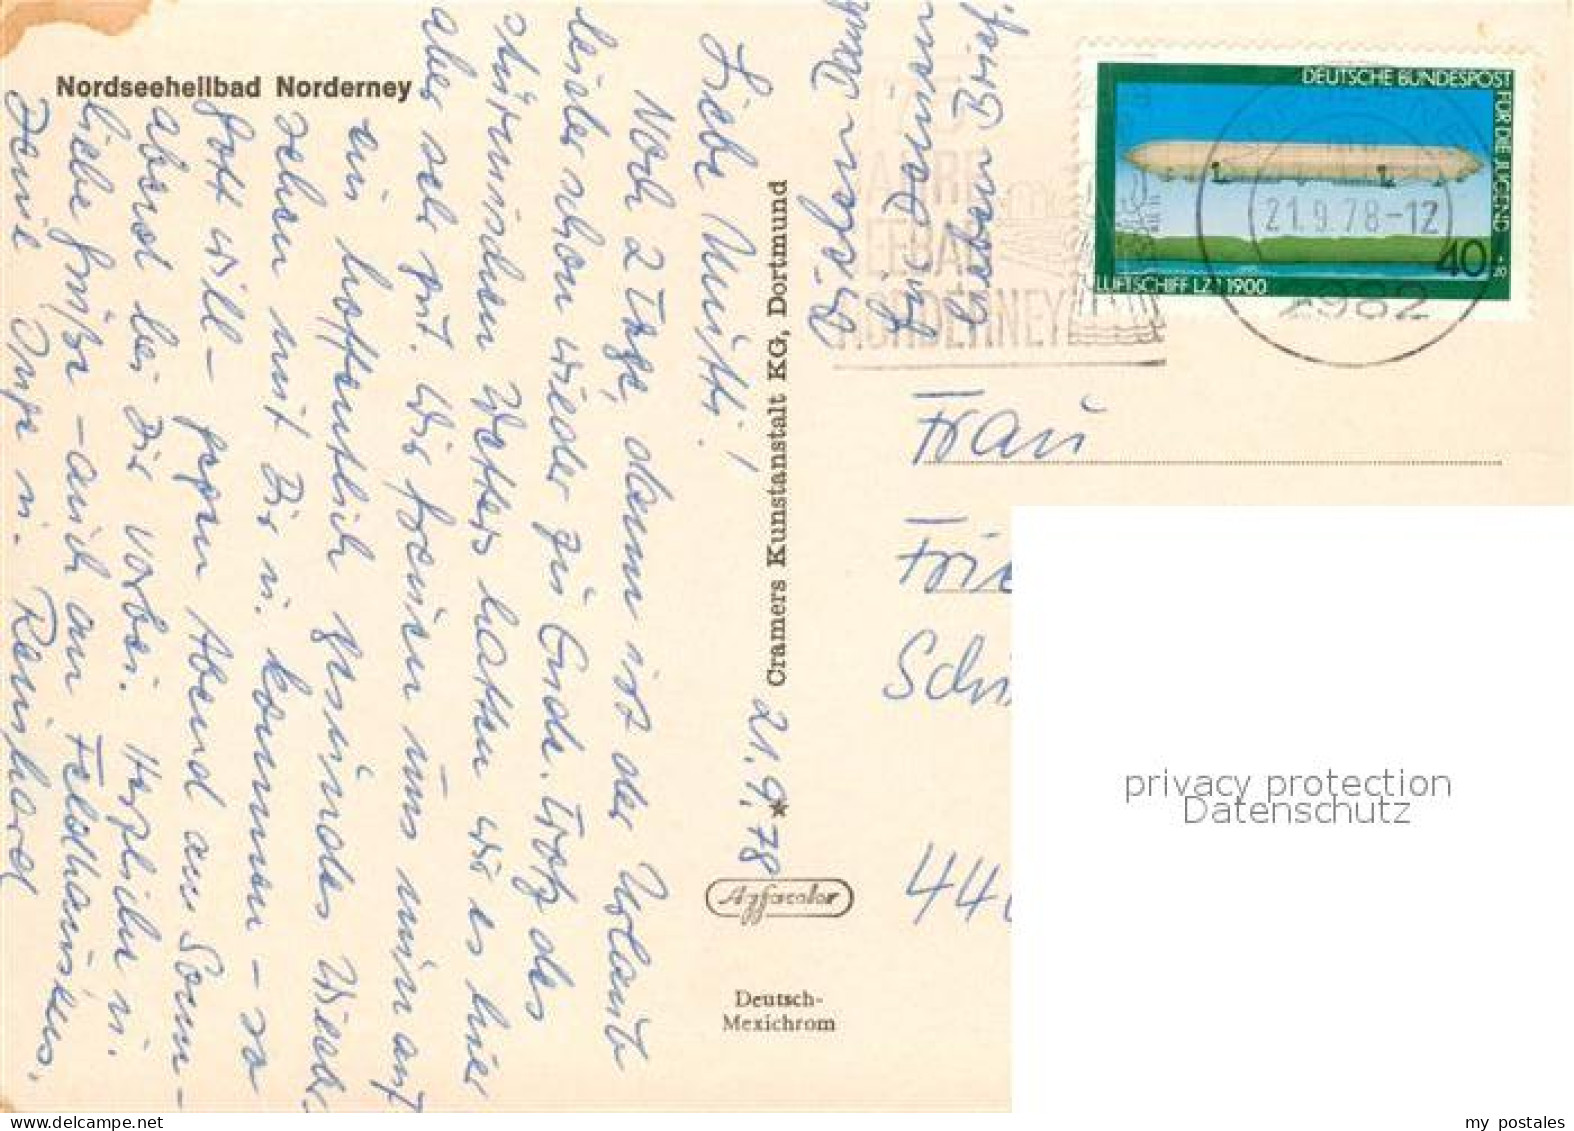 Nordseeheilbad Norderney
21.9.78
Liebe Mutti!
Noch 2 Tage, dann ist der Urlaub
leider schon wieder zu Ende. Trotz des
stürmischen Wetters hatten wir es hier
aber sehr gut. Wir freuen uns nun auf
ein hoffentlich gesundes Wieder-
sehen mit Dir u. kommen – so
Gott will – gegen Abend am Sonn-
abend bei Dir vorbei. Herzliche u.
liebe Grüße – auch an Feldhaus'ens.
Deine Inge u. Reinhard
Vielen Dank
für Deinen
lieben Brief!
Cramers Kunstanstalt KG, Dortmund
Agfacolor
Deutsch-
Mexichrom
JAHRE
SEEBAD
NORDERNEY
DEUTSCHE BUNDESPOST
FÜR DIE JUGEND
40
+20
LUFTSCHIFF LZ 1 1900
21.9.78-12
2982
Frau
Frie
Sch
440
privacy protection
Datenschutz
my postales